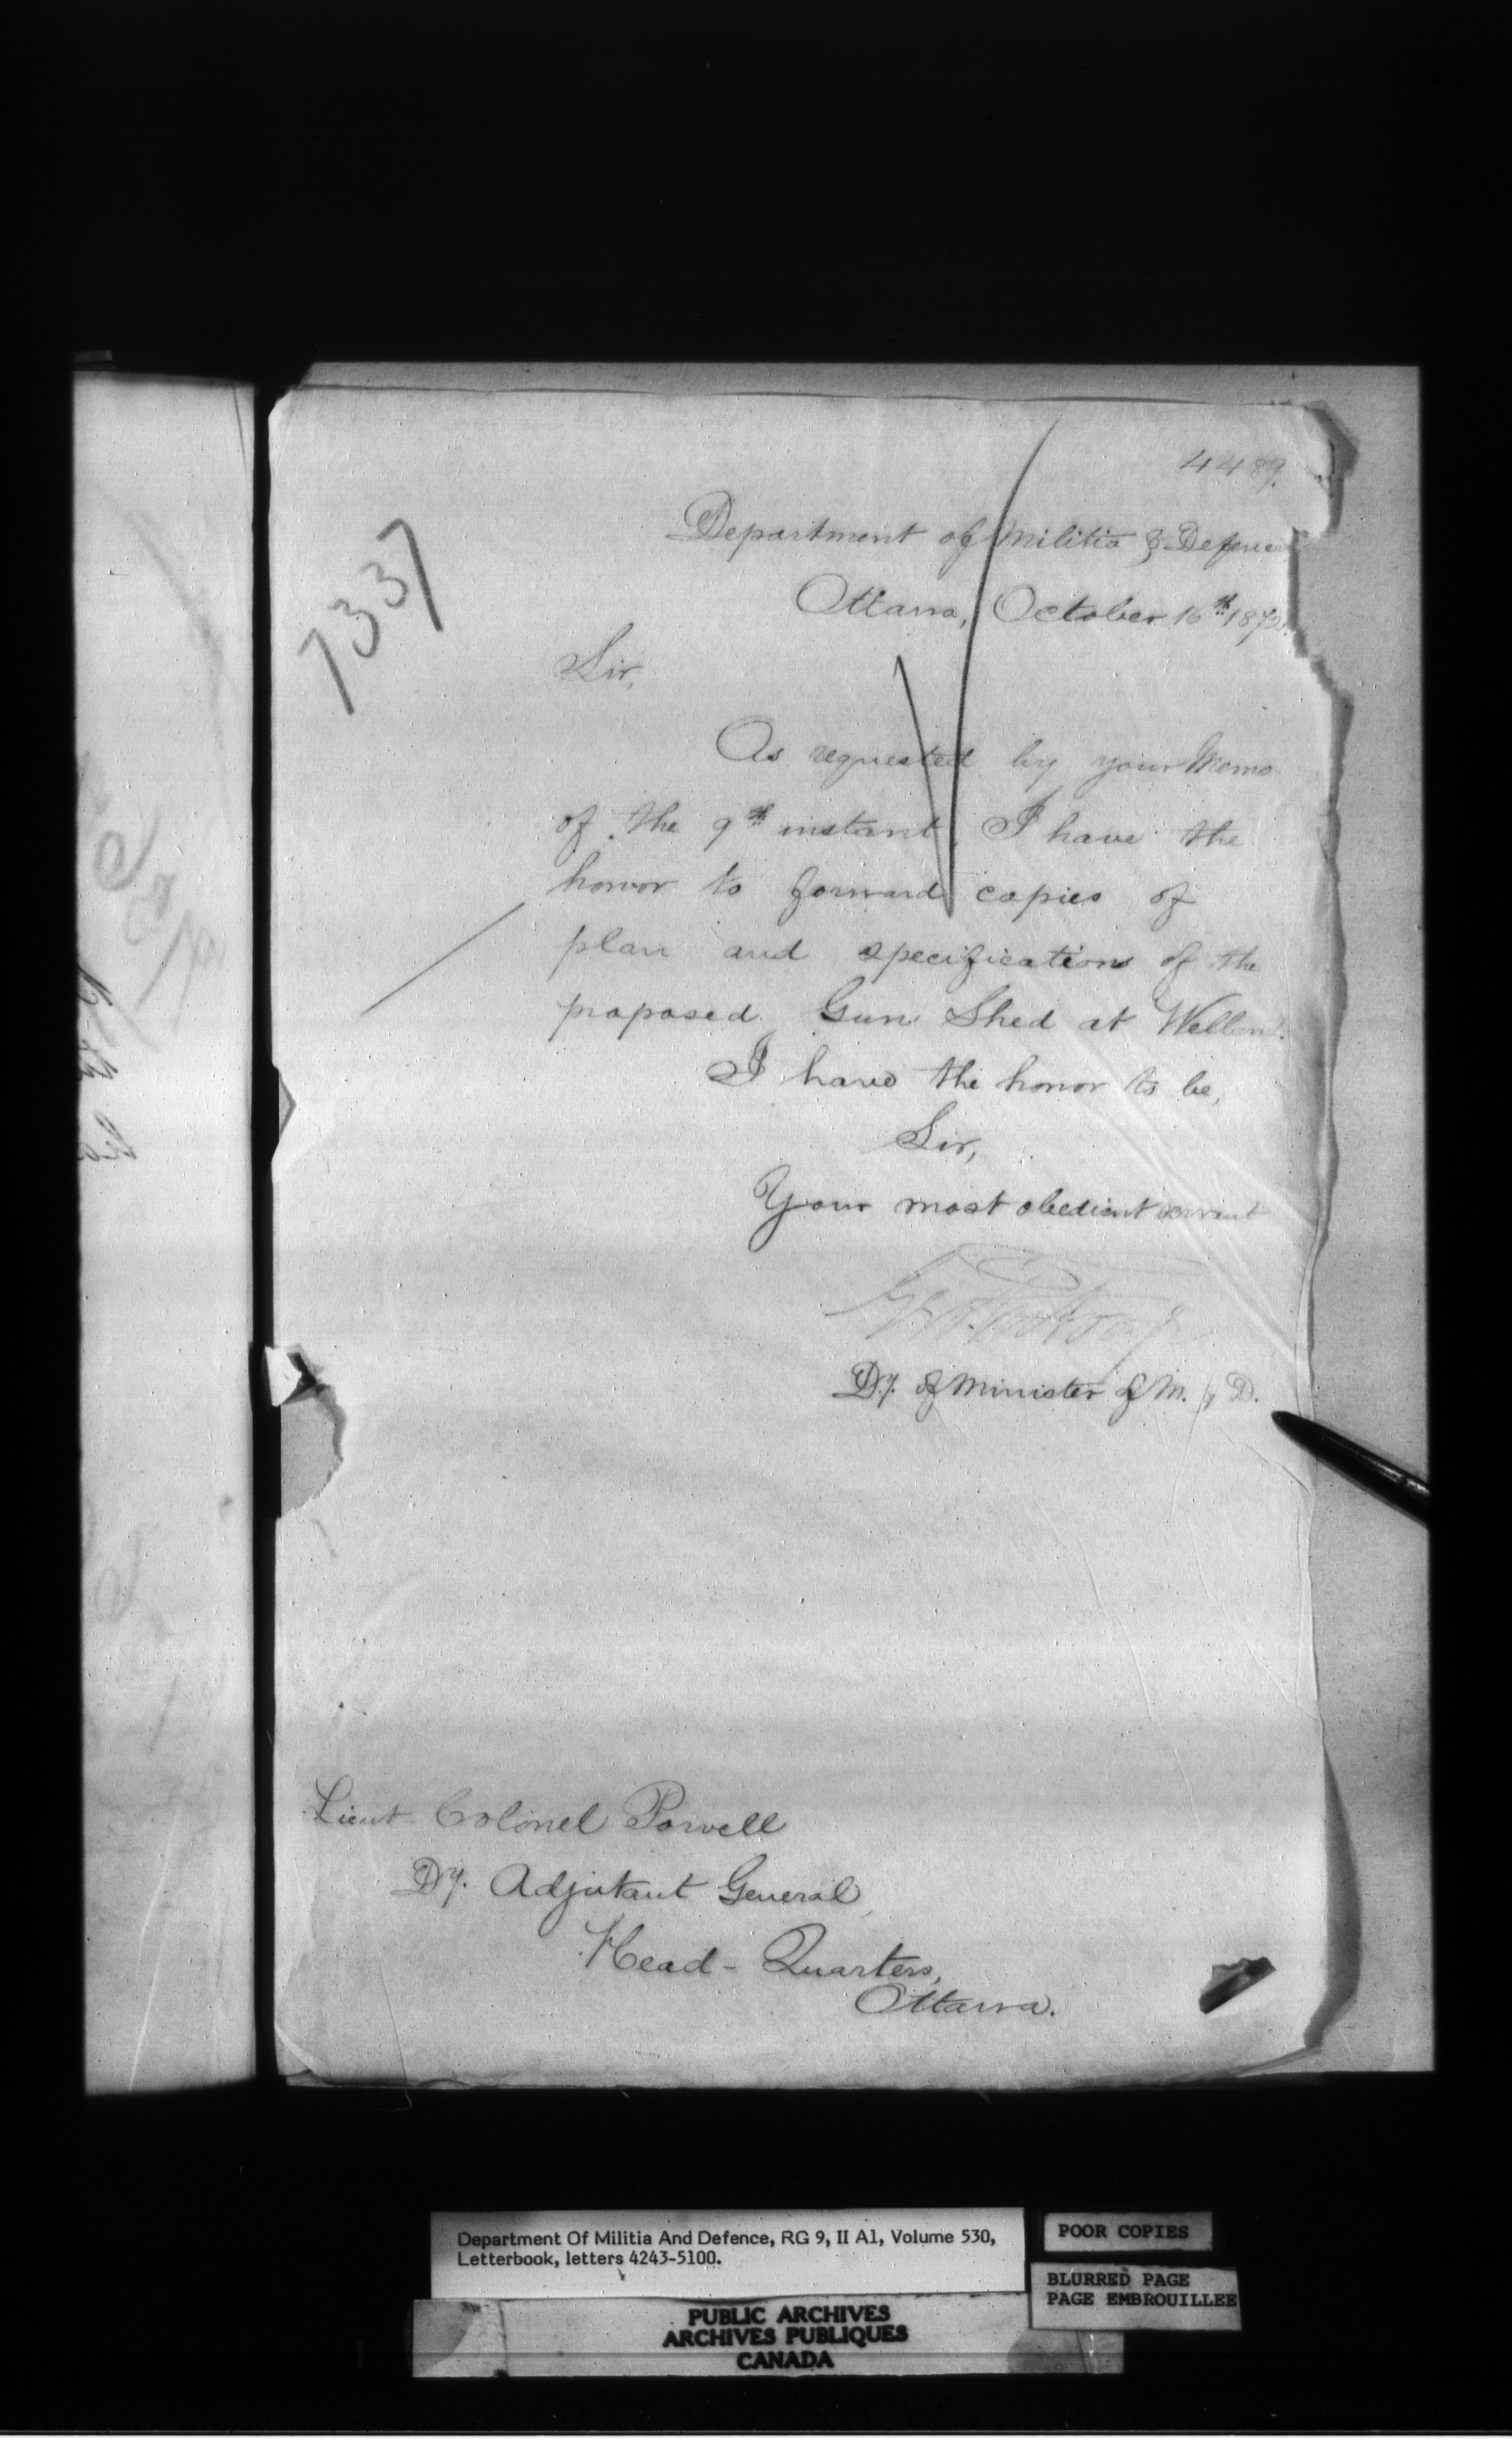 4489.
7337
Department of Militia & Defence
Ottawa, October 16th 1872.
Sir,
As requested by your Memo
of the 9th instant, I have the
honor to forward copies of
plan and specifications of the
proposed Gun Shed at Welland.
I have the honor to be,
Sir,
Your most obedient servant
Dy. of Minister of M. & D.
Lieut Colonel Powell
Dy. Adjutant General,
Head-Quarters,
Ottawa.
Department Of Militia And Defence, RG 9, II A1, Volume 530,
Letterbook, letters 4243-5100.
POOR COPIES
BLURRED PAGE
PAGE EMBROUILLEE
PUBLIC ARCHIVES
ARCHIVES PUBLIQUES
CANADA